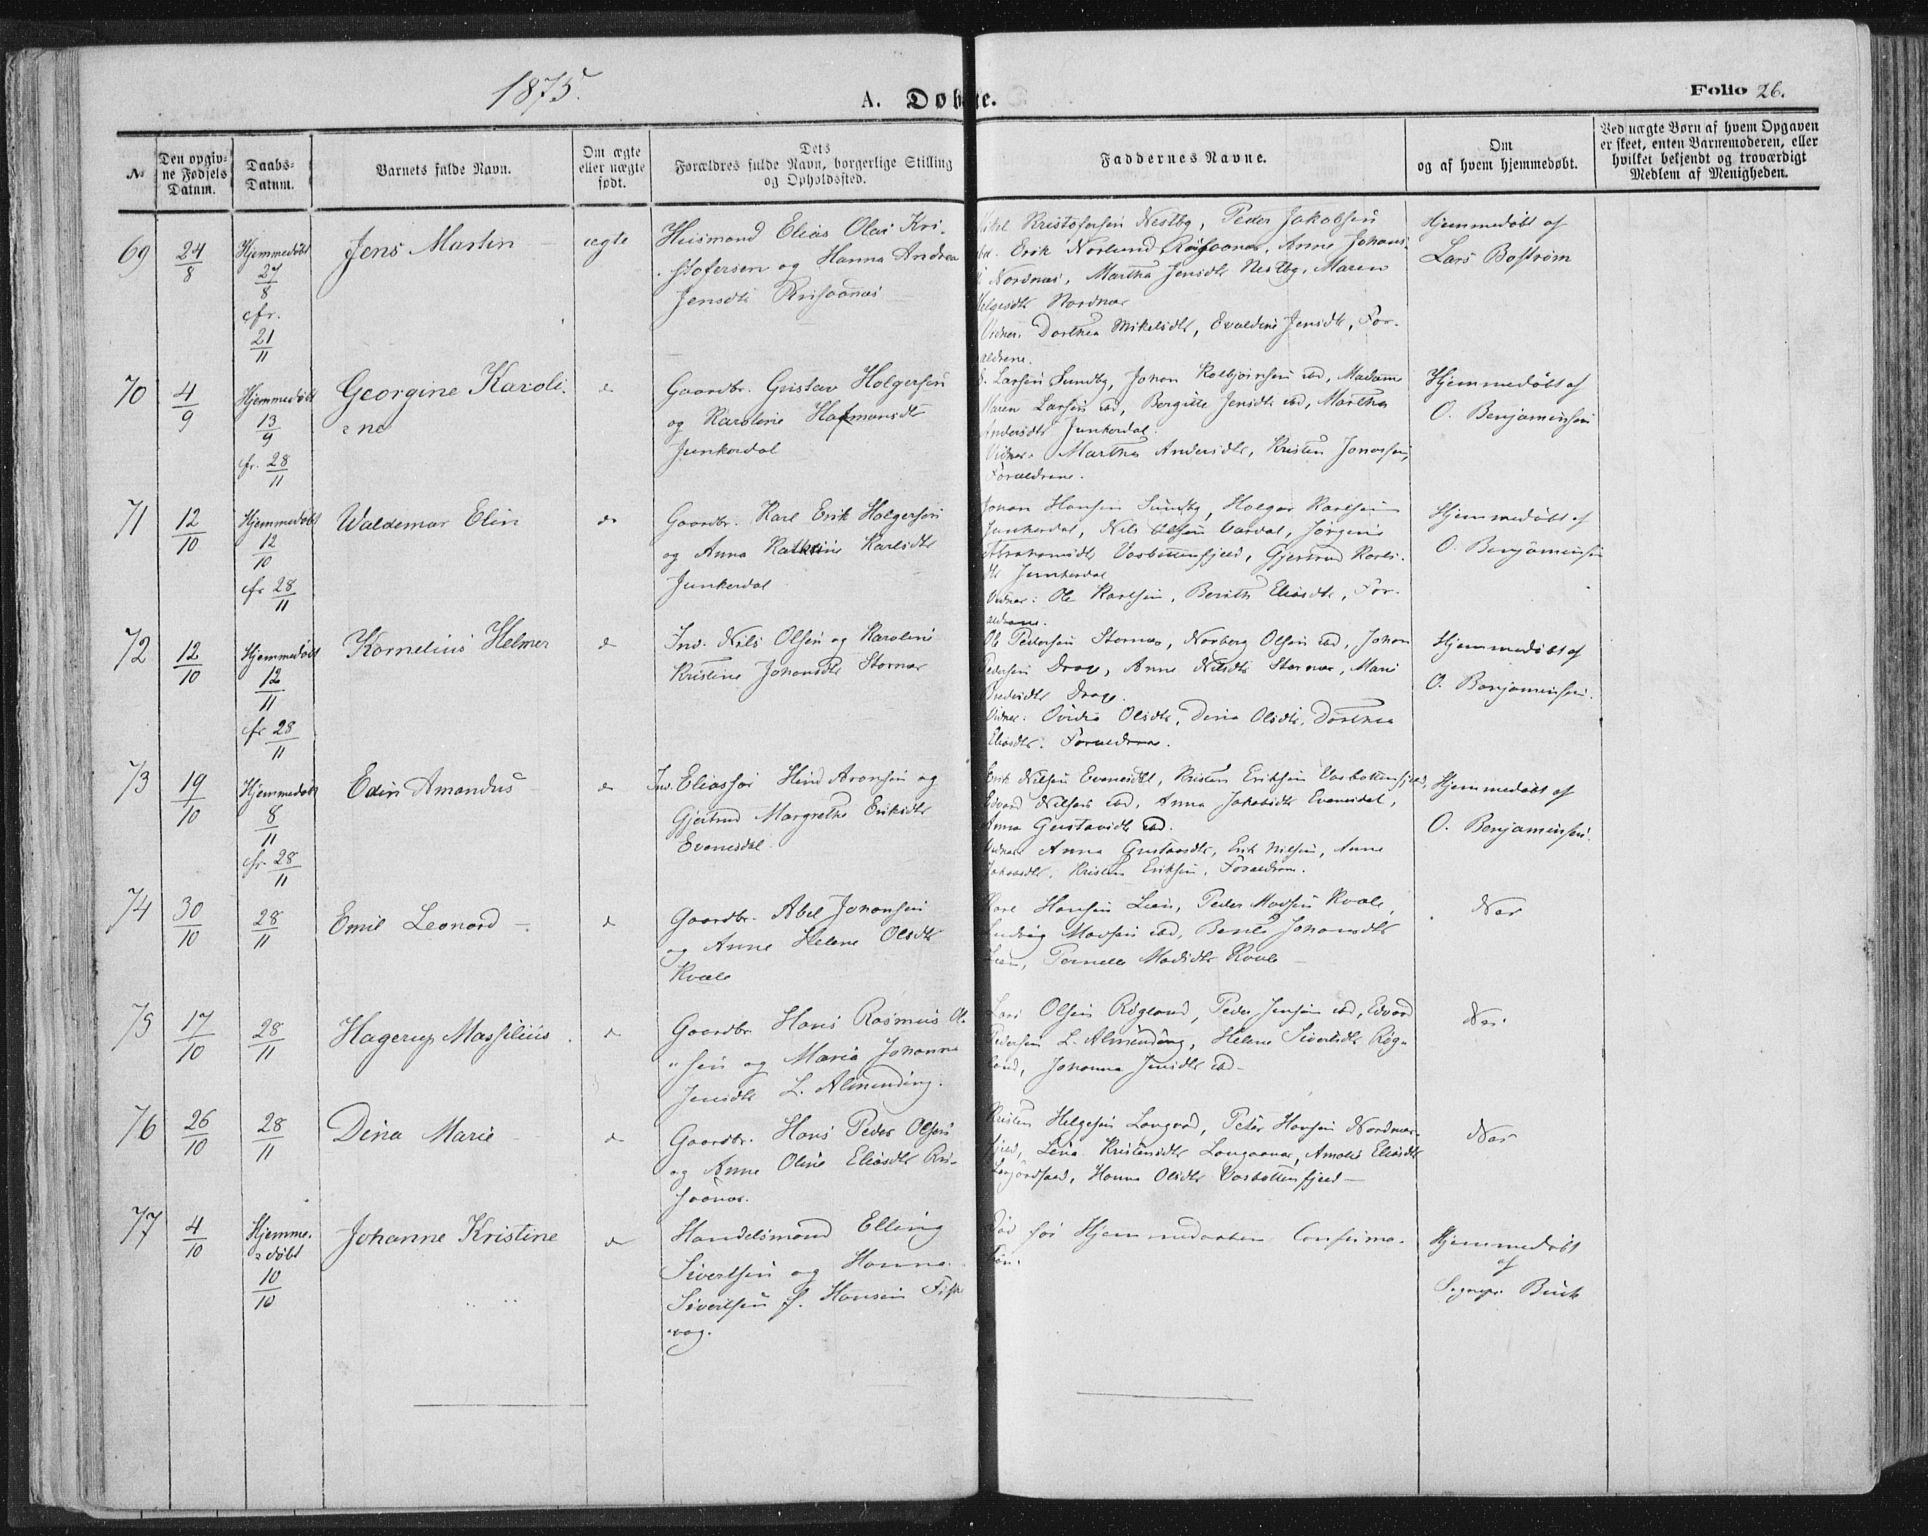 1875.
A. Døbte.
Folio 26.
No
Den opgivne Fødsels Datum.
Daabs-Datum.
Barnets fulde Navn.
Om ægte eller uægte født.
Dets Forældres fulde Navn, borgerlige Stilling og Opholdssted.
Faddernes Navne.
Om og af hvem hjemmedøbt.
Ved uægte Børn af hvem Opgaven er skeet, enten Barnemoderen, eller hvilket bekjendt og troværdigt Medlem af Menigheden.
69
24/8
Hjemmedøbt
27/8
cfr.
21/11
Jens Martin
ægte
Husmand Elias Olai Kri-
stofersen og Hanna Andrea
Jensdtr
Kristofersen Nestby, Peder Jakobsen
Erik Norlund, Anne Johans
Nordnæs, Martha Jensdtr Nestby, Maren
Helgesdtr Nordnæs
Vidner. Dorthea Mikelsdtr, Evaldine Jensdtr, For-
ældrene.
Hjemmedøbt af
Lars Bostrøm
70
4/9
Hjemmedøbt
13/9
cfr. 28/11
Georgine Karoli-
ne
do
Gaardbr. Gustav Holgersen
og Karoline Hofmansdtr
Junkerdal
Larsen Sundby, Johan Kolbjørnsen ibd, Madame
Maren Larsen ibd, Bergitte Jensdtr ibd, Martha
Andersdtr Junkerdal.
Vidner. Martha Andersdtr, Kristen Jonassen,
Forældrene.
Hjemmedøbt af
O. Benjaminsen
71
12/10
Hjemmedøbt
12/10
cfr 28/11
Waldemar Elin
do
Gaardbr. Karl Erik Holgersen
og Anna Kathrine Karlsdtr
Junkerdal
Johan Hansen Sundby, Holger Karlsen
Junkerdal, Nils Olsen, Jørgine
Abrahamsdtr Vasbottenfjeld, Gjertrud Karls-
dtr Junkerdal
Vidner: Ole Karlsen, Berith Eliasdtr, For-
ældrene.
Hjemmedøbt af
O. Benjaminsen
72
12/10
Hjemmedøbt
12/11
cfr 28/11
Kornelius Helmer
do
Ind. Nils Olsen og Karoline
Kristine Johansdtr Stornæs
Ole Pedersen Stornæs, Norberg Olsen ibd, Johan
Pedersen Drage, Anne Nilsdtr Stornæs, Mari
Drage.
Vidner: Ovidia Olsdtr, Dina Olsdtr, Dorthea
Eliasdtr. Forældrene.
Hjemmedøbt af
O. Benjaminsen.
73
19/10
Hjemmedøbt
8/11
cfr. 28/11
Edin Amandus
do
Ind. Aronsen og
Gjertrud Margrethe Eriksdtr
Evenesdal
Erik Nilsen Evenesdal, Kristen Eriksen Vasbottenfjeld,
Edvard Nilsen ibd, Anna Jakobsdtr Evenesdal,
Anna Gustavsdtr ibd.
Vidner Anna Gustavsdtr, Erik Nilsen, Anne
Jakobsdtr, Kristen Eriksen, Forældrene.
Hjemmedøbt af
O. Benjaminsen.
74
30/10
28/11
Emil Leonard
do
Gaardbr. Abel Johansen
og Anne Helene Olsdtr
Kvæle
Karl Hansen Lien, Peder Madsen Kvæle,
Ludvig Madsen ibd, Berit Johansdtr
Lien, Pernelle Madsdtr Kvæle
Nei
75
17/10
28/11
Hagerup Massilius
do
Gaardbr Hans Rasmus Ol-
sen og Maria Johanna
Jensdtr L. Almending.
Lars Olsen Røgland, Peder Jensen ibd, Edvard
Pedersen L. Almending, Helene Sivertsdtr Røg-
land, Johanna Jensdtr ibd
Nei
76
26/10
28/11
Dina Marie
do
Gaardbr. Hans Peder Olsen
og Anne Oline Eliasdtr
Kristen Helgesen, Peter Hansen Nordnæs-
fjeld, Lena Kristensdtr, Amalie Eliasdtr
Hanna Olsdtr Vasbottenfjeld
Nei
77
4/10
Hjemme-
døbt
10/10
Johanne Kristine
do
Handelsmand Elling
Sivertsen og Hanna
Sivertsen f. Hansen Fisk
vaag.
Død før Hjemmedaaben Confirma-
tion.
Hjemmedøbt
af
Sognepr